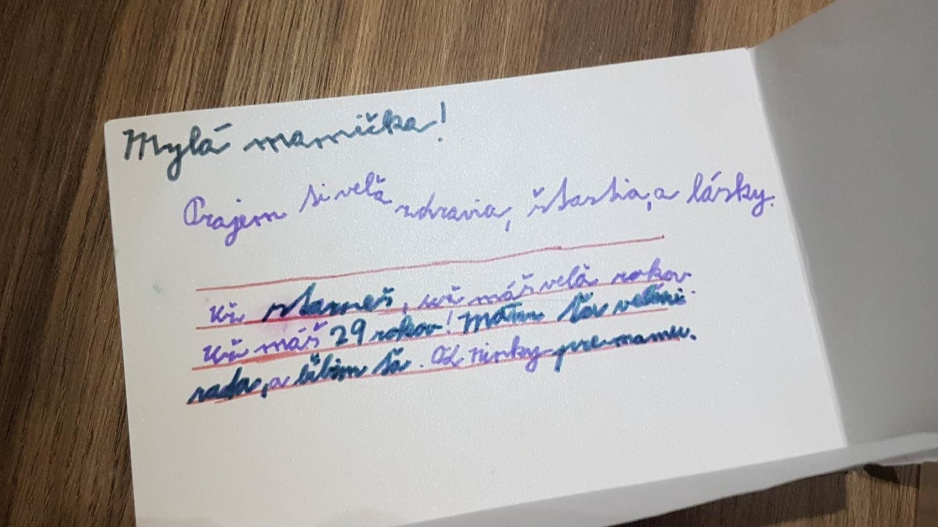 Mylá mamička!
Prajem ti velă zdravia, štastia, a lásky.
Už starneš, už máš velă rokov.
Už máš 29 rokov! Mám ťa velmi
rada, a lúbim ťa. Od ninky pre mamu.